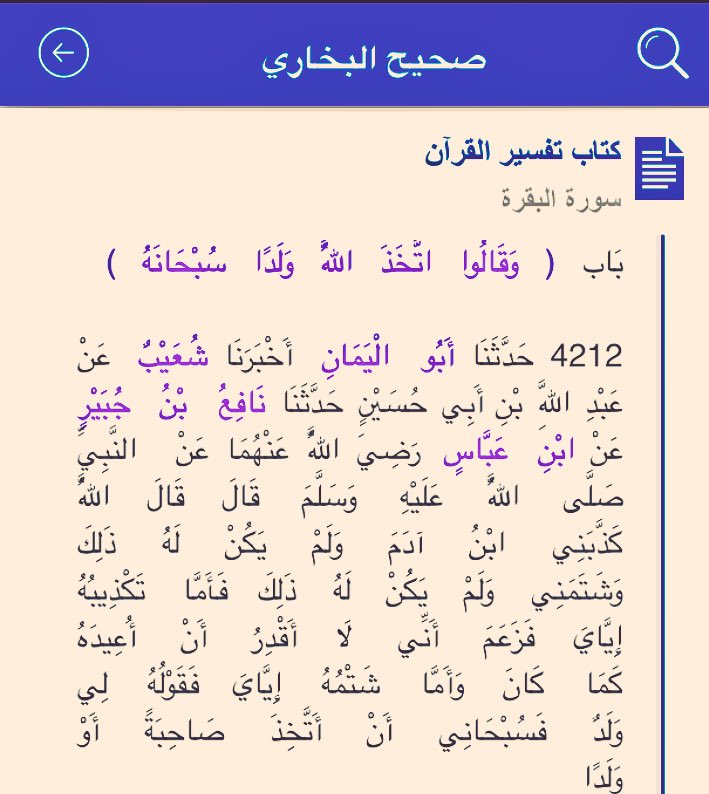 صحيح البخاري
كتاب تفسير القرآن
سورة البقرة
بَاب ( وَقَالُوا اتَّخَذَ اللَّهُ وَلَدًا سُبْحَانَهُ )
4212 حَدَّثَنَا أَبُو الْيَمَانِ أَخْبَرَنَا شُعَيْبٌ عَنْ
عَبْدِ اللَّهِ بْنِ أَبِي حُسَيْنٍ حَدَّثَنَا نَافِعُ بْنُ جُبَيْرٍ
عَنْ ابْنِ عَبَّاسٍ رَضِيَ اللَّهُ عَنْهُمَا عَنْ النَّبِيِّ
صَلَّى اللَّهُ عَلَيْهِ وَسَلَّمَ قَالَ قَالَ اللَّهُ
كَذَّبَنِي ابْنُ آدَمَ وَلَمْ يَكُنْ لَهُ ذَلِكَ
وَشَتَمَنِي وَلَمْ يَكُنْ لَهُ ذَلِكَ فَأَمَّا تَكْذِيبُهُ
إِيَّايَ فَزَعَمَ أَنِّي لَا أَقْدِرُ أَنْ أُعِيدَهُ
كَمَا كَانَ وَأَمَّا شَتْمُهُ إِيَّايَ فَقَوْلُهُ لِي
وَلَدٌ فَسُبْحَانِي أَنْ أَتَّخِذَ صَاحِبَةً أَوْ
وَلَدًا